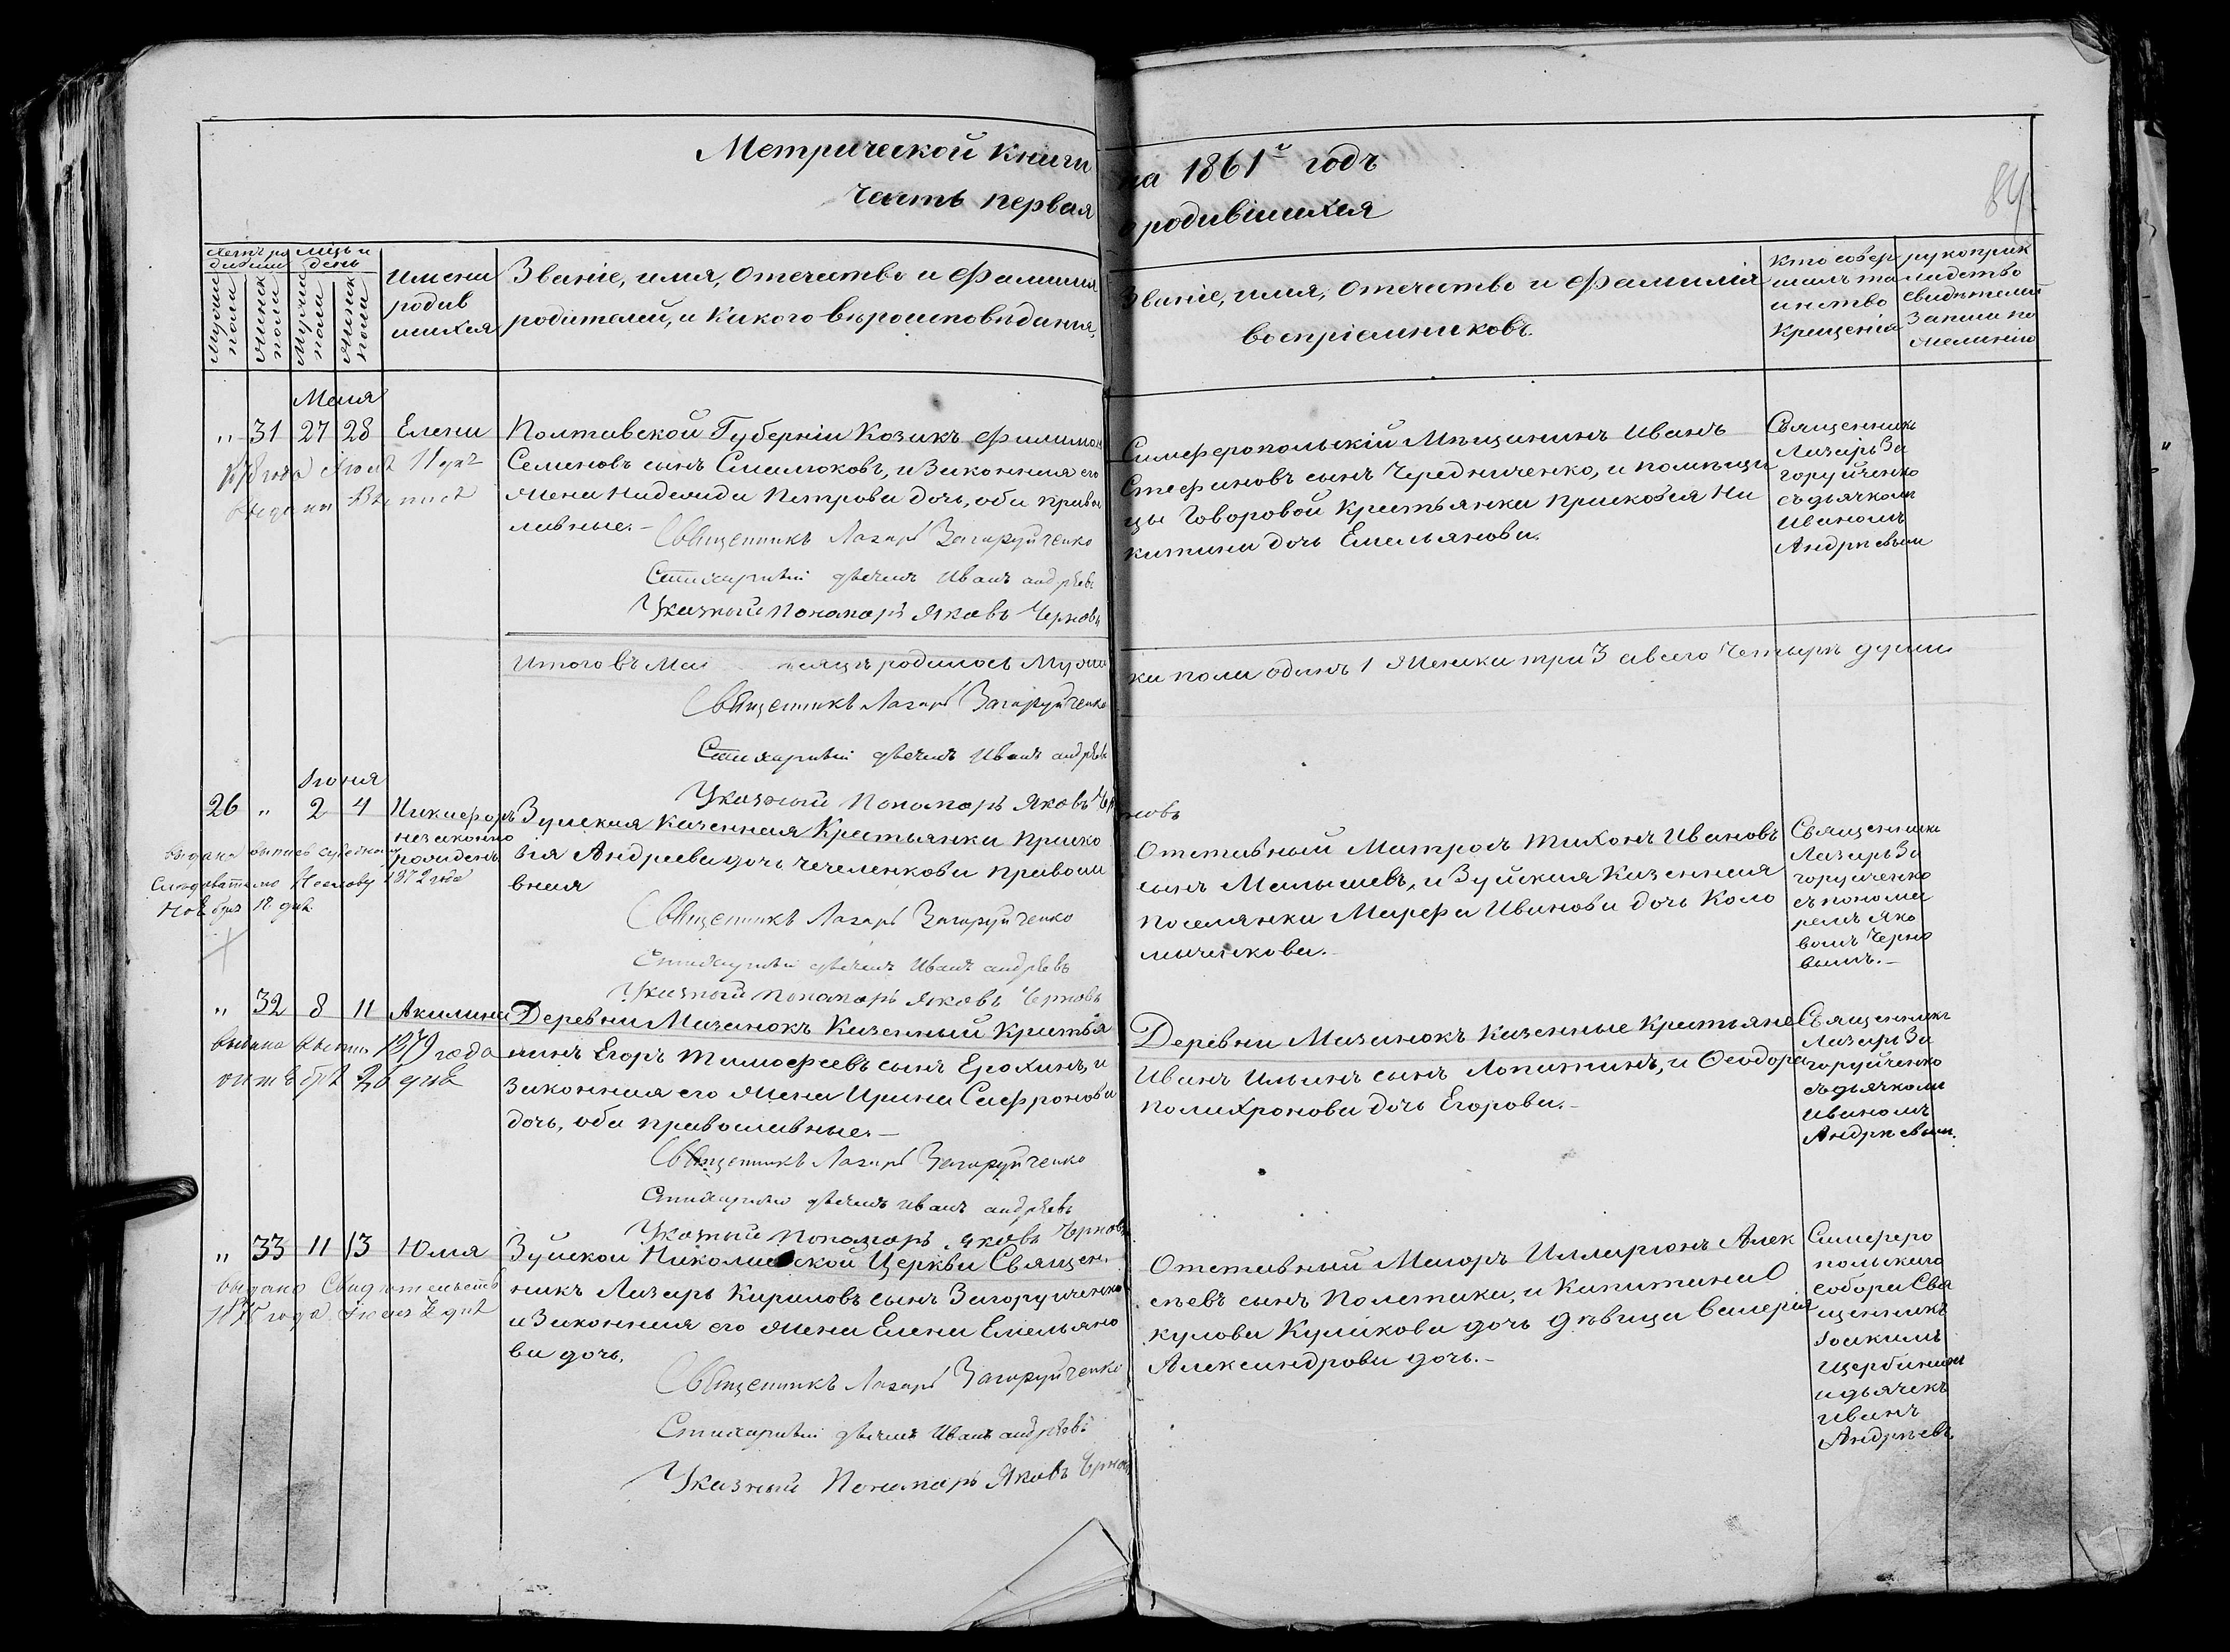 Метрической Книги на 1861й годъ
часть первая о родившихся
84
Счетъ ро дившихся
Мужеска пола
Женска пола
Мѣсяцъ и день
Мужеска пола
Женска пола
Имена
родив
шихся
Званіе, имя, отечество и фамилия
родителей, и какого вѣроисповѣдания,
Званіе, имя, отечество и фамилія
воспріемниковъ.
Кто совер
шилъ та
инство
Крещенія
рукоприк
ладство
свидѣтелей
записи по
желанію
Маія
„ 31 27 28 Елена
Полтавской Губерніи Козакъ Филимонъ
Семеновъ сынъ Смалюковъ, и Законная его
жена Надежда Петрова дочь, оба правос
лавные.–
Священникъ Лазарь Загоруйченко
Стихарный дьячекъ Иванъ Андреевъ
Указный Пономарь Яковъ Черновъ
1878 года
выдана выпись
Симферопольскій Мѣщанинъ Иванъ
Стефановъ сынъ Чередниченко, и помѣщи
цы Говоровой Крестьянка Прасковія Ни
китина дочь Емельянова.
Священникъ
Лазарь За
горуйченко
съ дьячкомъ
Иваномъ
Андреевым
Итого въ Маѣ мѣсяцѣ родилось Мужес
ка пола одинъ 1 Женска три 3 а всего четыре души
Священникъ Лазарь Загоруйченко
Стихарный дьячекъ Иванъ Андреевъ
Указный Пономарь Яковъ Черновъ
Іюня
26 „ 2 4 Никифоръ
незаконно
рожденъ
Зуйская Казенная Крестьянка Праско
вія Андреева дочь Чечеленкова правосла
вная
Священникъ Лазарь Загоруйченко
Стихарный дьячекъ Иванъ Андреевъ
Указный Пономарь Яковъ Черновъ
выдана выпись судебному
Слѣдователю 1872 года
Ноября 18 дня
Отставный Матросъ Тихонъ Ивановъ
сынъ Малышевъ, и Зуйская Казенная
поселянка Марфа Иванова дочь Коло
мыченкова.–
Священникъ
Лазарь За
горуйченко
съ понома
ремъ Яко
вомъ Черно
вымъ.–
„ 32 8 11 Акилина
Деревни Мазанокъ Казенный Крестья
нинъ Егоръ Тимофеевъ сынъ Ерохинъ, и
Законная его жена Ирина Сафронова
дочь, оба православные.–
Священникъ Лазарь Загоруйченко
Стихарный дьячекъ Иванъ Андреевъ
Указный Пономарь Яковъ Черновъ
выдана выпись 1879 года
октября 26 дня
Деревни Мазанокъ Казенные Крестьяне
Иванъ Ильинъ сынъ Лопатинъ, и Феодора
Полихронова дочь Егорова.–
Священникъ
Лазарь За
горуйченко
съ дьячкомъ
Иваномъ
Андреевым.
„ 33 11 13 Юлія
Зуйской Николаевской Церкви Священ
никъ Лазарь Кириловъ сынъ Загоруйченко
и Законная его жена Елена Емельяно
ва дочь.
Священникъ Лазарь Загоруйченко
Стихарный дьячекъ Иванъ Андреевъ
Указный Пономарь Яковъ Черновъ
выдано Свидѣтельство
1875 года
Отставный Маіоръ Илларіонъ Алек
сѣевъ сынъ Полетика, и Капитана
Куликова дочь дѣвица Валерія
Александрова дочь.–
Симферо
польскаго
собора Свя
щенникъ
Іоакимъ
Щербина
и дьячекъ
Иванъ
Андреевъ